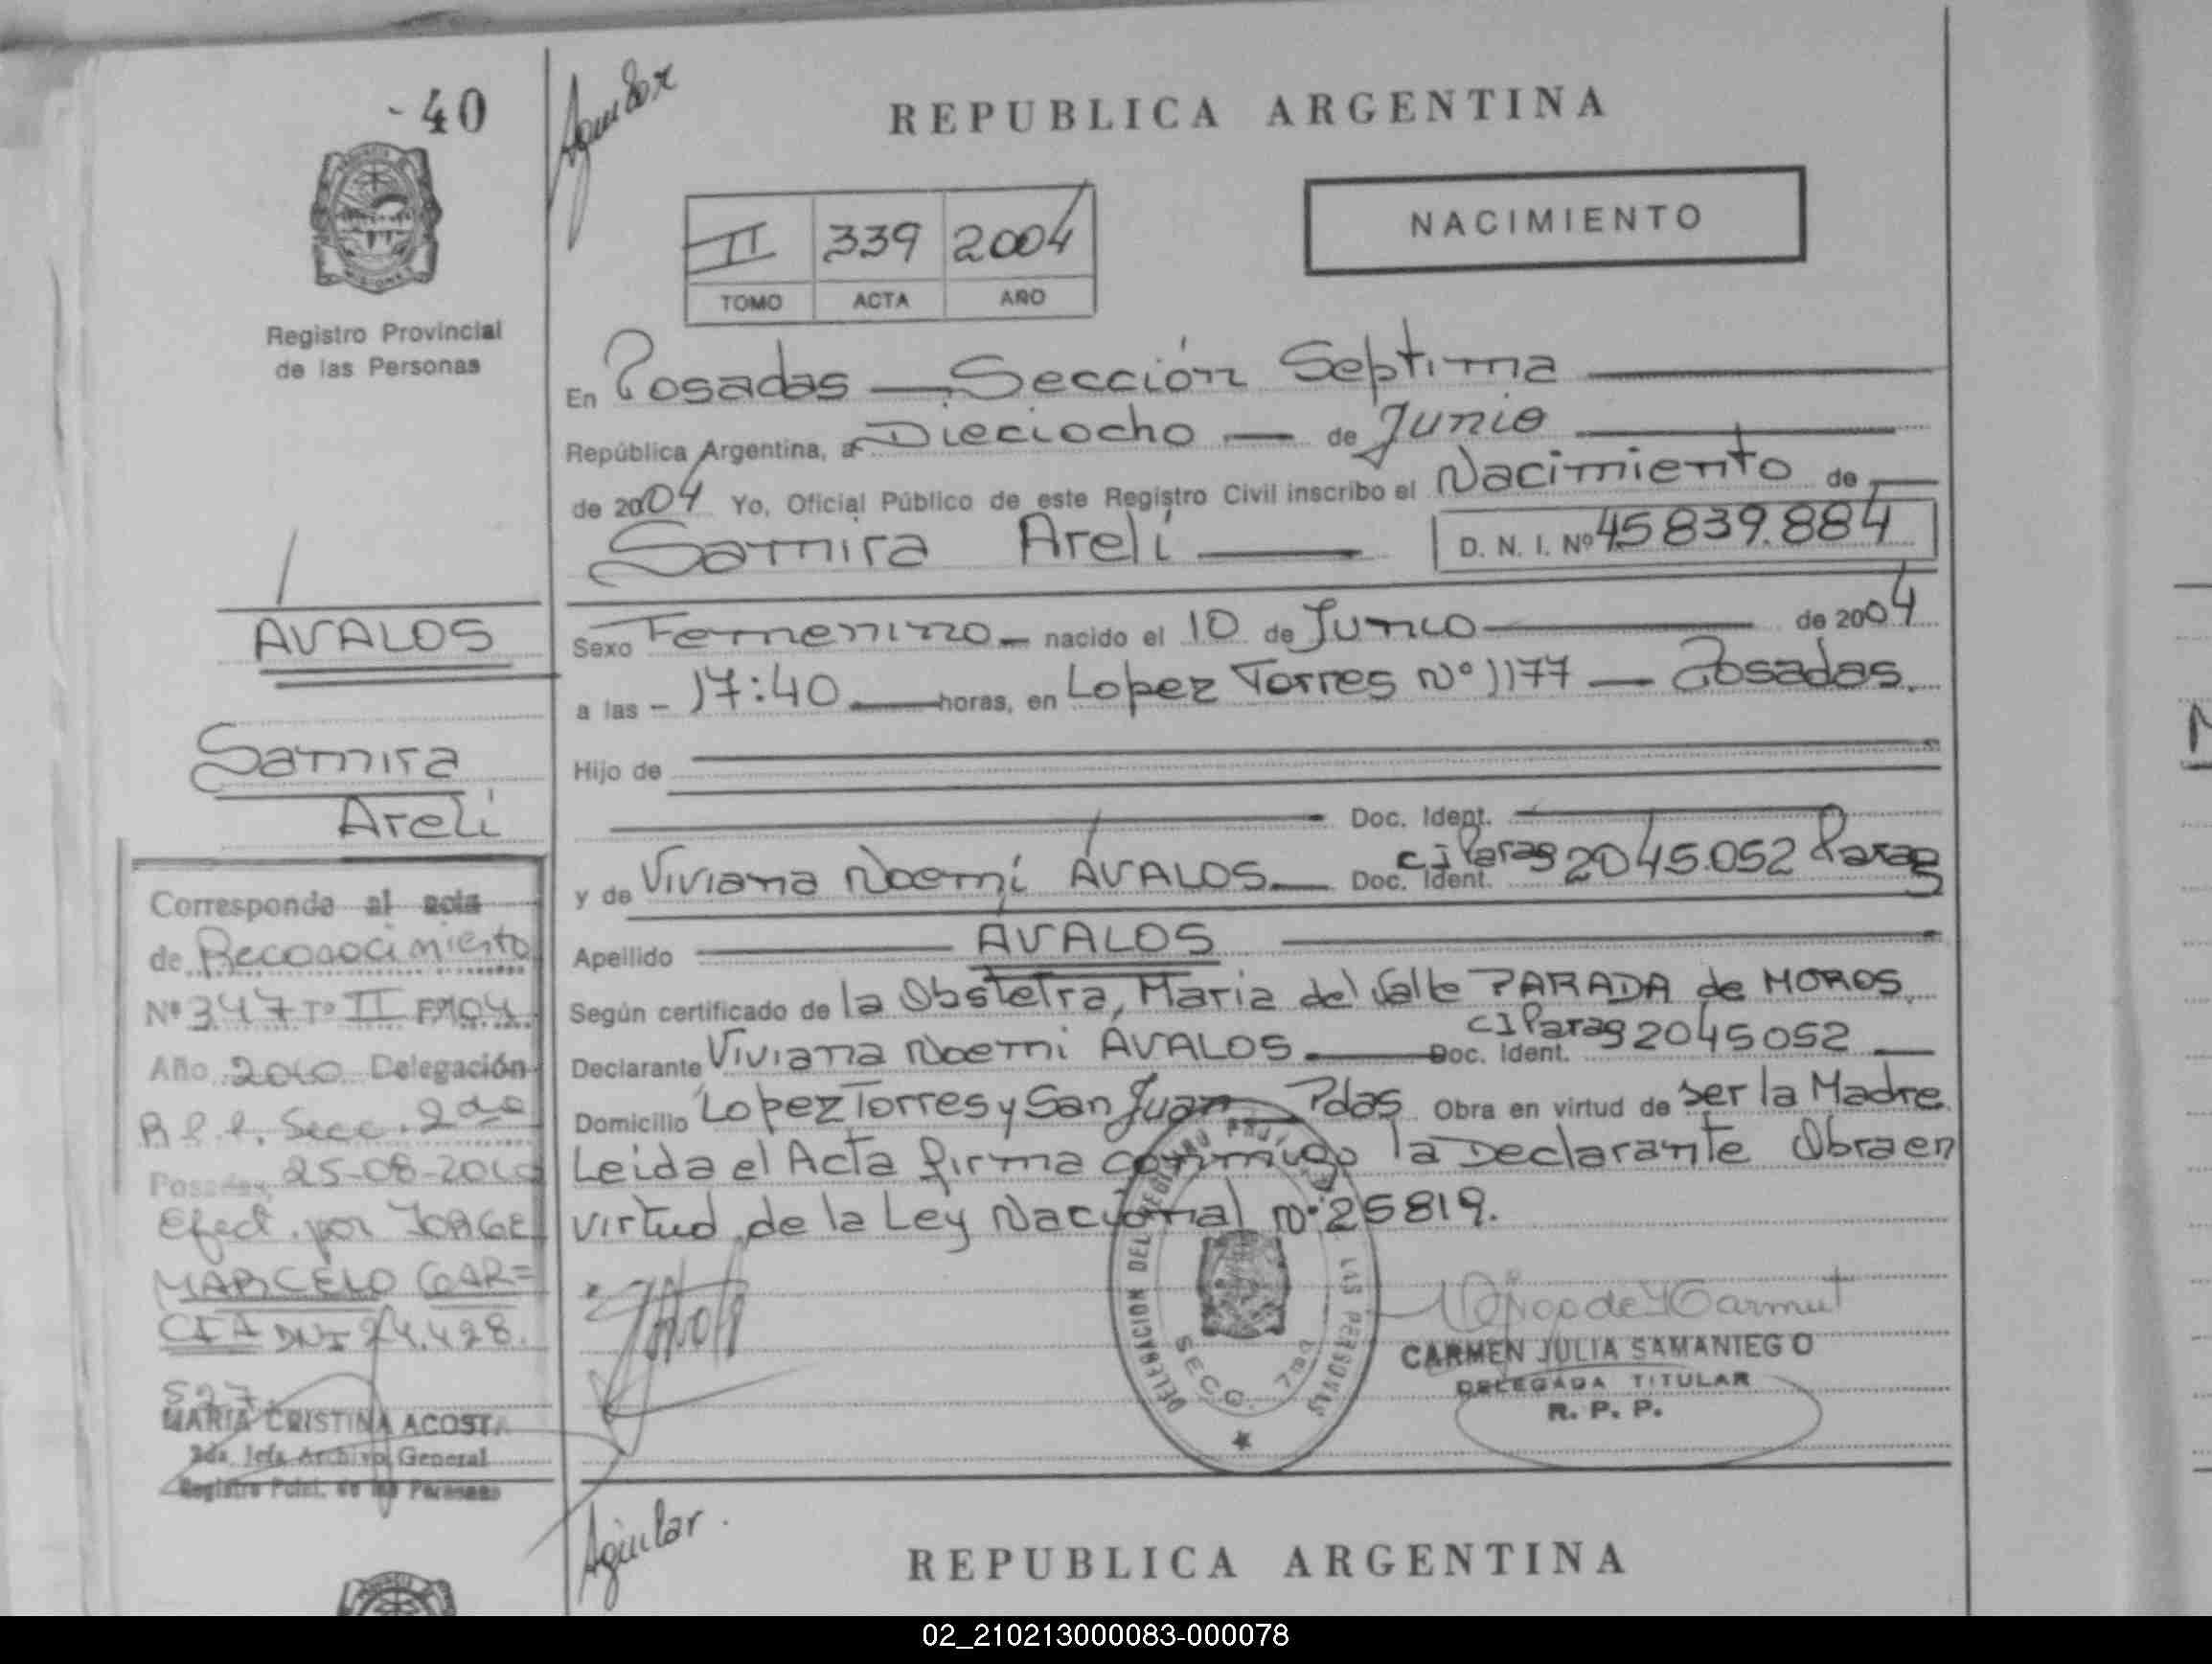 - 40
Aguilar
REPUBLICA ARGENTINA
NACIMIENTO
II 339 2004
TOMO ACTA AÑO
Registro Provincial
de las Personas
En Posadas — Sección Septima
República Argentina, a Dieciocho — de Junio
de 2004 Yo, Oficial Público de este Registro Civil inscribo el Nacimiento de
Samira Areli D. N. I. Nº 45839.884
Sexo Femenino nacido el 10 de Junio de 2004
a las - 17:40 horas, en Lopez Torres Nº 1177 — Posadas.
Hijo de
Doc. Ident.
y de Viviana Noemi ÁVALOS Doc. Ident. CI Parag 2045.052 Parag
Apellido ÁVALOS
Según certificado de la Obstetra, Maria del Valle PARADA de MOROS.
Declarante Viviana Noemi ÁVALOS Doc. Ident. CI Parag 2045052
Domicilio Lopez Torres y San Juan Pdas Obra en virtud de ser la Madre
Leida el Acta firma conmigo la Declarante Obra en
virtud de la Ley Nacional Nº 25819.
AVALOS
Samira
Areli
Corresponde al acta
de Reconocimiento
Nº 347 Tº II Fº 104
Año 2010 Delegación
R.P.P. Secc. 2da
Posadas, 25-08-2010
Efect. por JORGE
MARCELO GAR=
CIA DNI 24.428.
527.
MARIA CRISTINA ACOSTA
2da. Jefa Archivo General
Registro Pcial. de las Personas
DELEGACION DEL REGISTRO PROVINCIAL DE LAS PERSONAS
SECC. 7ma
CARMEN JULIA SAMANIEGO
DELEGADA TITULAR
R. P. P.
Aguilar.
REPUBLICA ARGENTINA
02_210213000083-000078